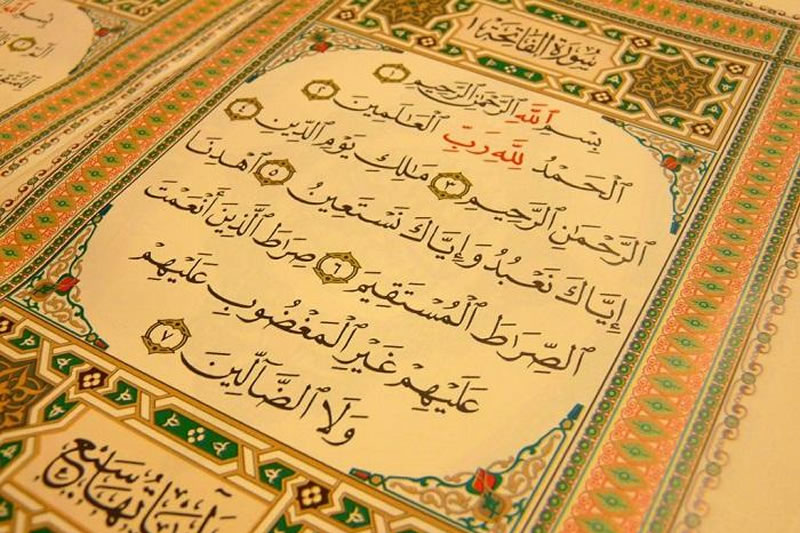 سُورَةُ الفَاتِحَةِ ١
بِسْمِ ٱللَّهِ ٱلرَّحْمَٰنِ ٱلرَّحِيمِ ١
ٱلْحَمْدُ لِلَّهِ رَبِّ ٱلْعَٰلَمِينَ ٢
ٱلرَّحْمَٰنِ ٱلرَّحِيمِ ٣ مَٰلِكِ يَوْمِ ٱلدِّينِ ٤
إِيَّاكَ نَعْبُدُ وَإِيَّاكَ نَسْتَعِينُ ٥ ٱهْدِنَا
ٱلصِّرَٰطَ ٱلْمُسْتَقِيمَ ٦ صِرَٰطَ ٱلَّذِينَ أَنْعَمْتَ
عَلَيْهِمْ غَيْرِ ٱلْمَغْضُوبِ عَلَيْهِمْ
وَلَا ٱلضَّآلِّينَ ٧
وآياتها سبع